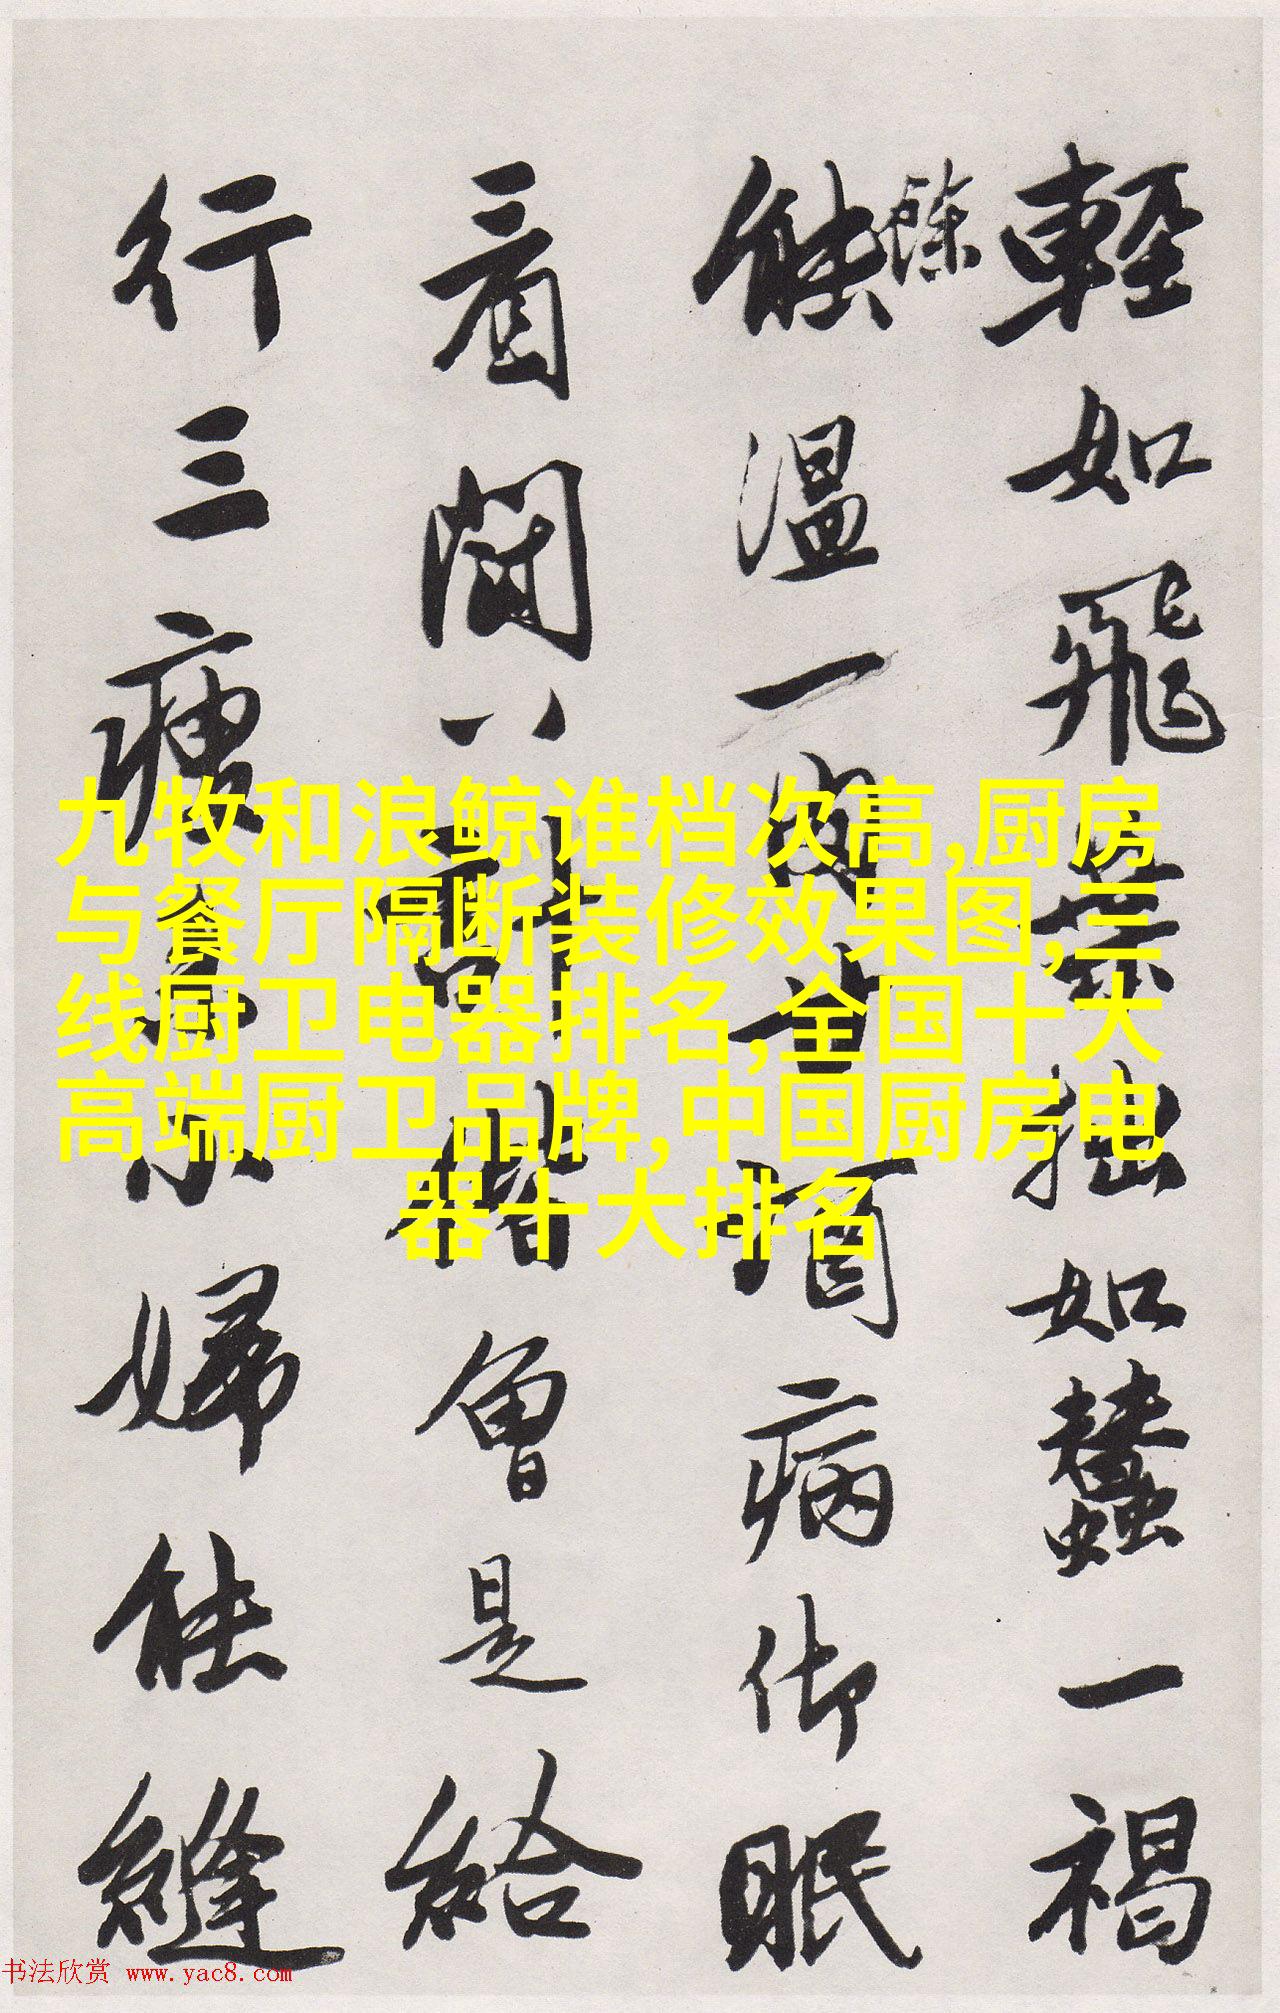 輕如飛拙如蠶一褐
餘
能溫一病御眠
看八計偕曾是給
行三瘦小婦能縫
九牧和浪鲸谁档次高,厨房
与餐厅隔断装修效果图,三
线厨卫电器排名,全国十大
高端厨卫品牌,中国厨房电
器十大排名
书法欣赏 www.yac8.com